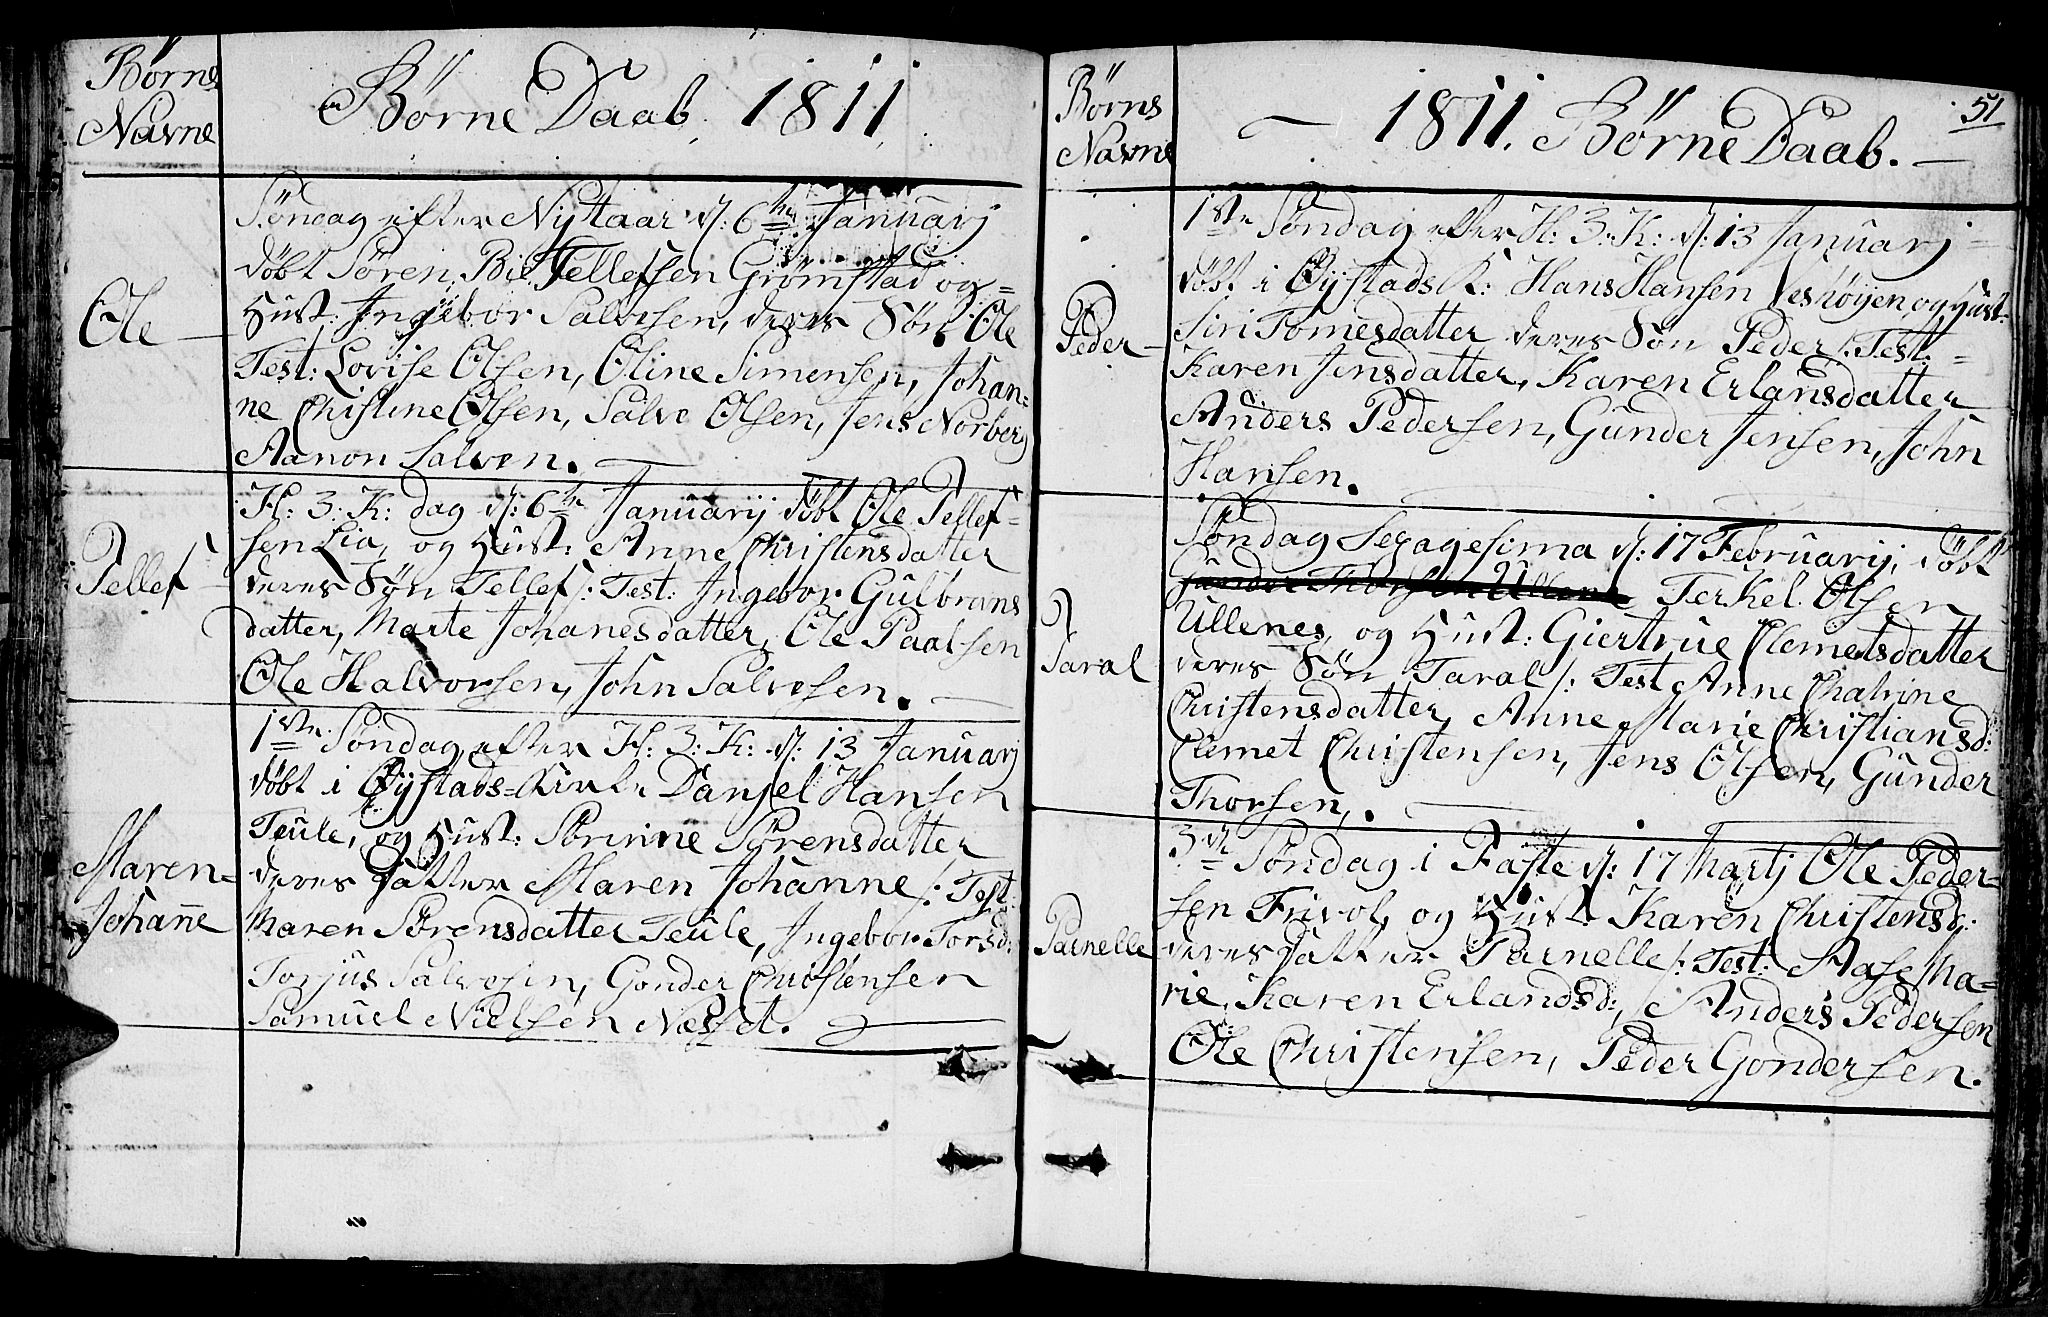 Børne
Navne
Børne Daab 1811.
Ole
Søndag efter Nytaar d: 6te Januarj
døbt Søren Bie Tellefsen Grømstad og
Hust: Ingebor Salvesen, deres Søn Ole
Test: Lovise Olsen, Oline Simensen, Johan=
ne Christine Olsen, Salve Olsen, Jens Norberg
Aanon Salven.
Tellef
H: 3: K: dag d: 6te Januarij døbt Ole Tellef=
sen Lia, og Hust: Anne Christensdatter
deres Søn Tellef /: Test: Ingebor Gulbrans
datter, Marte Johanesdatter, Ole Paalsen
Ole Halvorsen, John Salvesen.
Maren=
Johanne
1ste Søndag efter H: 3: K: d: 13 Januarj
døbt i Øijstads=Kirke Danjel Hansen
Teule, og Hust: Sörinne Sörensdatter
deres Datter Maren Johanne /: Test:
Maren Sörensdatter Teule, Ingebor Torsd:
Torjus Salvesen, Gonder Christensen
Samuel Nielsen Næsset.
Børns
Navne
1811. Børne Daab.
51
Peder
1ste Søndag efter H: 3: K: d: 13 Januarj
døbt i Øijstads K: Hans Hansen Veshøyen og Hust:
Siri Tomesdatter deres Søn Peder /: Test:
Karen Jensdatter, Karen Erlansdatter
Anders Pedersen, Gunder Jensen, John
Hansen.
Taral
Søndag Sexagesima d: 17 Februarij, døbt
Gunder Thorsen Ullenes Terkel Olsen
Ullenes, og Hust: Giertrue Clemetsdatter
deres Søn Taral /: Test Anne Chatrine
Christensdatter, Anne Marie Christiansd:
Clemet Christensen, Jens Olsen, Gunder
Thorsen,.
Parnelle
3die Søndag i Faste d: 17 Martj Ole Peder=
sen Frivol, og Hust: Karen Christensd:
deres Datter Parnelle /: Test: Aase Ma=
rie, Karen Erlandsd:, Anders Pedersen
Ole Christensen, Peder Gondersen.